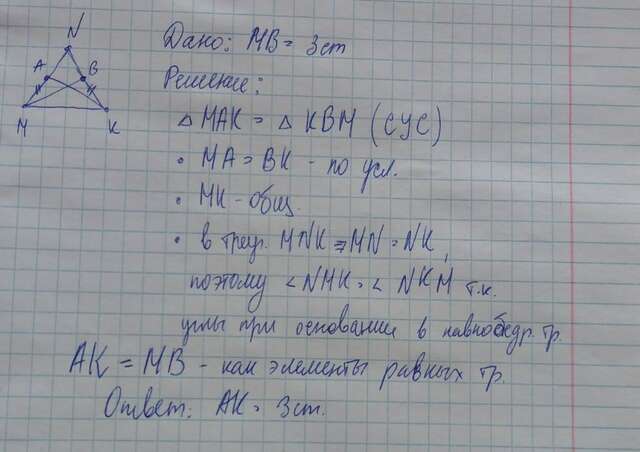 N
A
B
M
K
Дано: MB = 3 cm
Решение:
△ MAK = △ KBM (СУС)
• MA = BK - по усл.
• MK - общ.
• в треуг. MNK ⇒ MN = NK,
поэтому < NMK = < NKM т.к.
углы при основании в равнобедр. тр.
AK = MB - как элементы равных тр.
Ответ: AK = 3 cm.